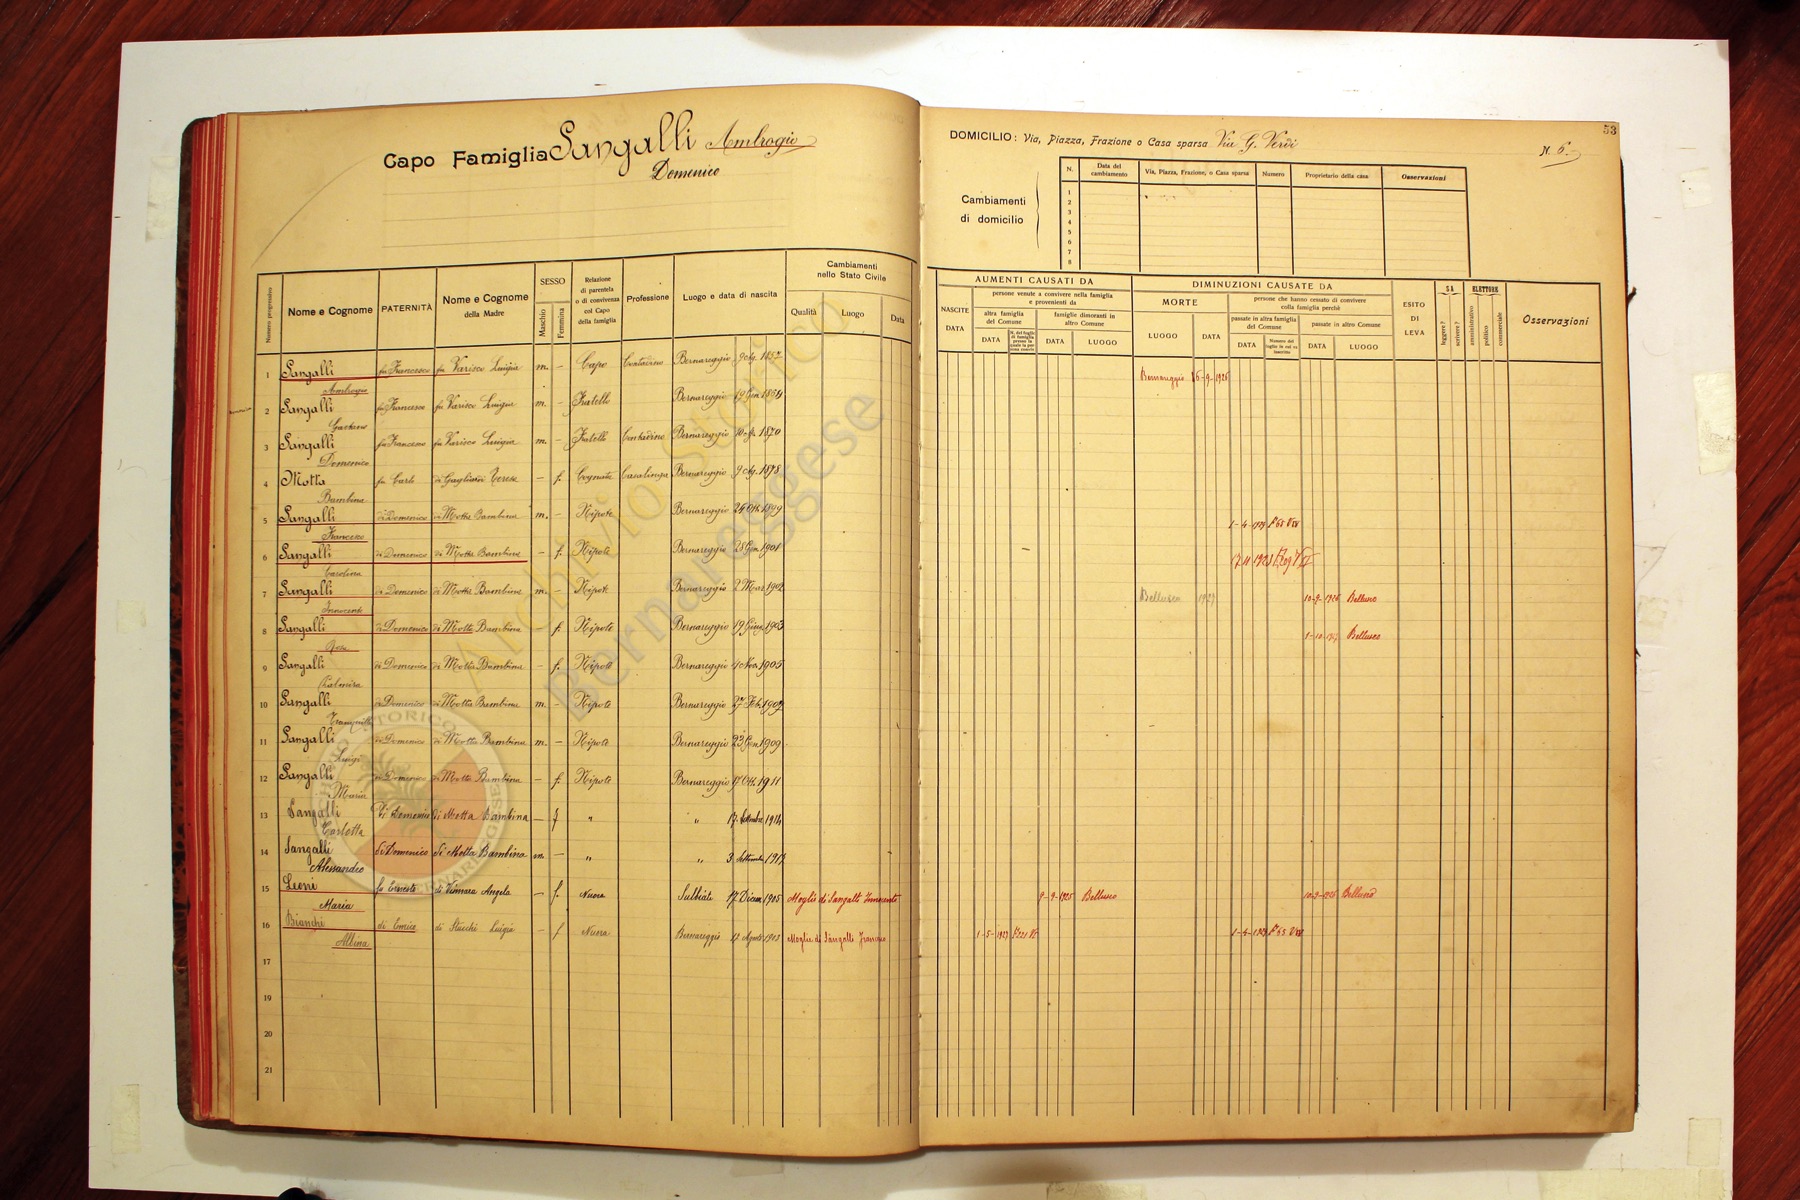 Capo Famiglia Sangalli Ambrogio
Domenico
53
DOMICILIO: Via, Piazza, Frazione o Casa sparsa Via G. Verdi N. 6
Cambiamenti di domicilio
N. Data del cambiamento Via, Piazza, Frazione, o Casa sparsa Numero Proprietario della casa Osservazioni
1
2
3
4
5
6
7
8
Numero progressivo Nome e Cognome PATERNITÀ Nome e Cognome della Madre SESSO Maschio Femmina Relazione di parentela o di convivenza col Capo della famiglia Professione Luogo e data di nascita Cambiamenti nello Stato Civile Qualità Luogo Data
AUMENTI CAUSATI DA DIMINUZIONI CAUSATE DA
NASCITE DATA persone venute a convivere nella famiglia e provenienti da altra famiglia del Comune DATA famiglie dimoranti in altro Comune DATA LUOGO
MORTE LUOGO DATA persone che hanno cessato di convivere colla famiglia perchè passate in altra famiglia del Comune DATA Numero del foglio in cui va inscritto passate in altro Comune DATA LUOGO
ESITO DI LEVA SA leggere? scrivere? ELETTORE amministrativo politico commerciale Osservazioni
1 Sangalli Ambrogio fu Francesco fu Varisco Luigia m. – Capo Contadino Bernareggio Bernareggio 6-9-1926
2 Sangalli Gaetano fu Francesco fu Varisco Luigia m. – Fratello Bernareggio
3 Sangalli Domenico fu Francesco fu Varisco Luigia m. – Fratello Contadino Bernareggio 1870
4 Motta Bambina fu Carlo di Teresa – f. Cognata Casalinga Bernareggio 1878
5 Sangalli Francesco di Domenico di Motta Bambina m. – Nipote Bernareggio 24 Ott. 1899
6 Sangalli Carolina di Domenico di Motta Bambina – f. Nipote Bernareggio 28 Gen. 1901
7 Sangalli Innocente di Domenico di Motta Bambina m. – Nipote Bernareggio 2 Mar. 1902 Bellusco 1927 10-9-1926 Bellusco
8 Sangalli Rosa di Domenico di Motta Bambina f. Nipote Bernareggio 19 Giu. 1903 1-10-1927 Bellusco
9 Sangalli Palmira di Domenico di Motta Bambina – f. Nipote Bernareggio 4 Nov. 1905
10 Sangalli di Domenico di Motta Bambina m. – Nipote Bernareggio 27 Feb. 1907
11 Sangalli Luigi di Domenico di Motta Bambina m. – Nipote Bernareggio 23 Gen. 1909
12 Sangalli Maria di Domenico di Motta Bambina – f. Nipote Bernareggio 17 Ott. 1911
13 Sangalli Carlotta di Domenico di Motta Bambina – f " " 17 Settembre 1914
14 Sangalli Alessandro di Domenico di Motta Bambina m. – " " 3 Settembre 1917
15 Leoni Maria fu Ernesto di Angela – f. Nuora Sulbiate 17 Dicem. 1905 Moglie di Sangalli Innocente 9-9-1925 Bellusco 10-9-1926 Bellusco
16 Bianchi Albina di Enrico di Stucchi Luigia – f Nuora Bernareggio 17 Agosto 1903 Moglie di Sangalli Francesco 1-5-1927
17
18
19
20
21
Archivio Storico
Bernareggese